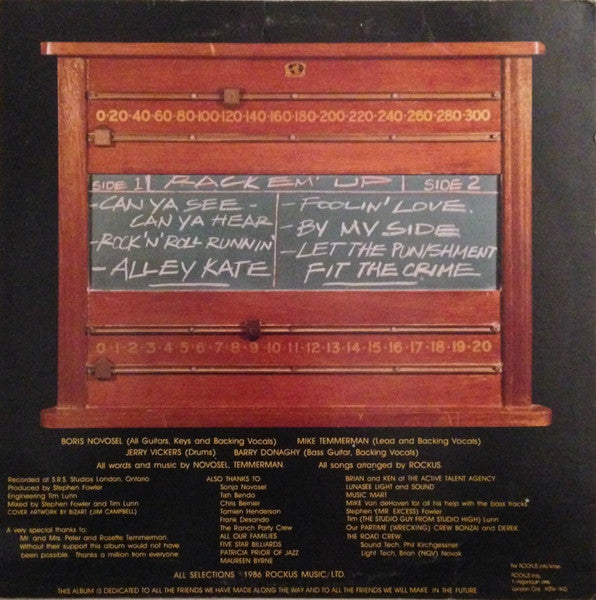 0·20·40·60·80·100·120·140·160·180·200·220·240·260·280·300
SIDE 1 RACK EM' UP SIDE 2
-CAN YA SEE -
CAN YA HEAR
-ROCK 'N' ROLL RUNNIN'
-ALLEY KATE
-FOOLIN' LOVE.
-BY MY SIDE
-LET THE PUNISHMENT
FIT THE CRIME
0·1·2·3·4·5·6·7·8·9·10·11·12·13·14·15·16·17·18·19·20
BORIS NOVOSEL (All Guitars, Keys and Backing Vocals) MIKE TEMMERMAN (Lead and Backing Vocals)
JERRY VICKERS (Drums) BARRY DONAGHY (Bass Guitar, Backing Vocals)
All words and music by NOVOSEL, TEMMERMAN. All songs arranged by ROCKUS.
Recorded at S.R.S. Studios London, Ontario
Produced by Stephen Fowler
Engineering Tim Lunn
Mixed by Stephen Fowler and Tim Lunn
COVER ARTWORK BY BIZART (JIM CAMPBELL)
A very special thanks to:
Mr. and Mrs. Peter and Rosette Temmerman.
Without their support this album would not have
been possible. Thanks a million from everyone.
ALSO THANKS TO:
Sonja Novosel
Tish Benda
Chris Bernier
Tamien Henderson
Frank Desando
The Ranch Party Crew
ALL OUR FAMILIES
FIVE STAR BILLIARDS
PATRICIA PRIOR OF JAZZ
MAUREEN BYRNE
BRIAN and KEN at THE ACTIVE TALENT AGENCY
LUNASEE LIGHT and SOUND
MUSIC MART
MIKE Van deHoven for all his help with the bass tracks
Stephen (MR EXCESS) Fowler
Tim (THE STUDIO GUY FROM STUDIO HIGH) Lunn
Our PARTIME (WRECKING) CREW BONZAI and DEREK
THE ROAD CREW:
Sound Tech, Phil Kirchgessner
Light Tech, Brian (NOV) Novak
For ROCKUS Info Write:
ROCKUS Info,
London Ont.
ALL SELECTIONS ©1986 ROCKUS MUSIC/LTD.
THIS ALBUM IS DEDICATED TO ALL THE FRIENDS WE HAVE MADE ALONG THE WAY AND TO ALL THE FRIENDS WE WILL MAKE IN THE FUTURE